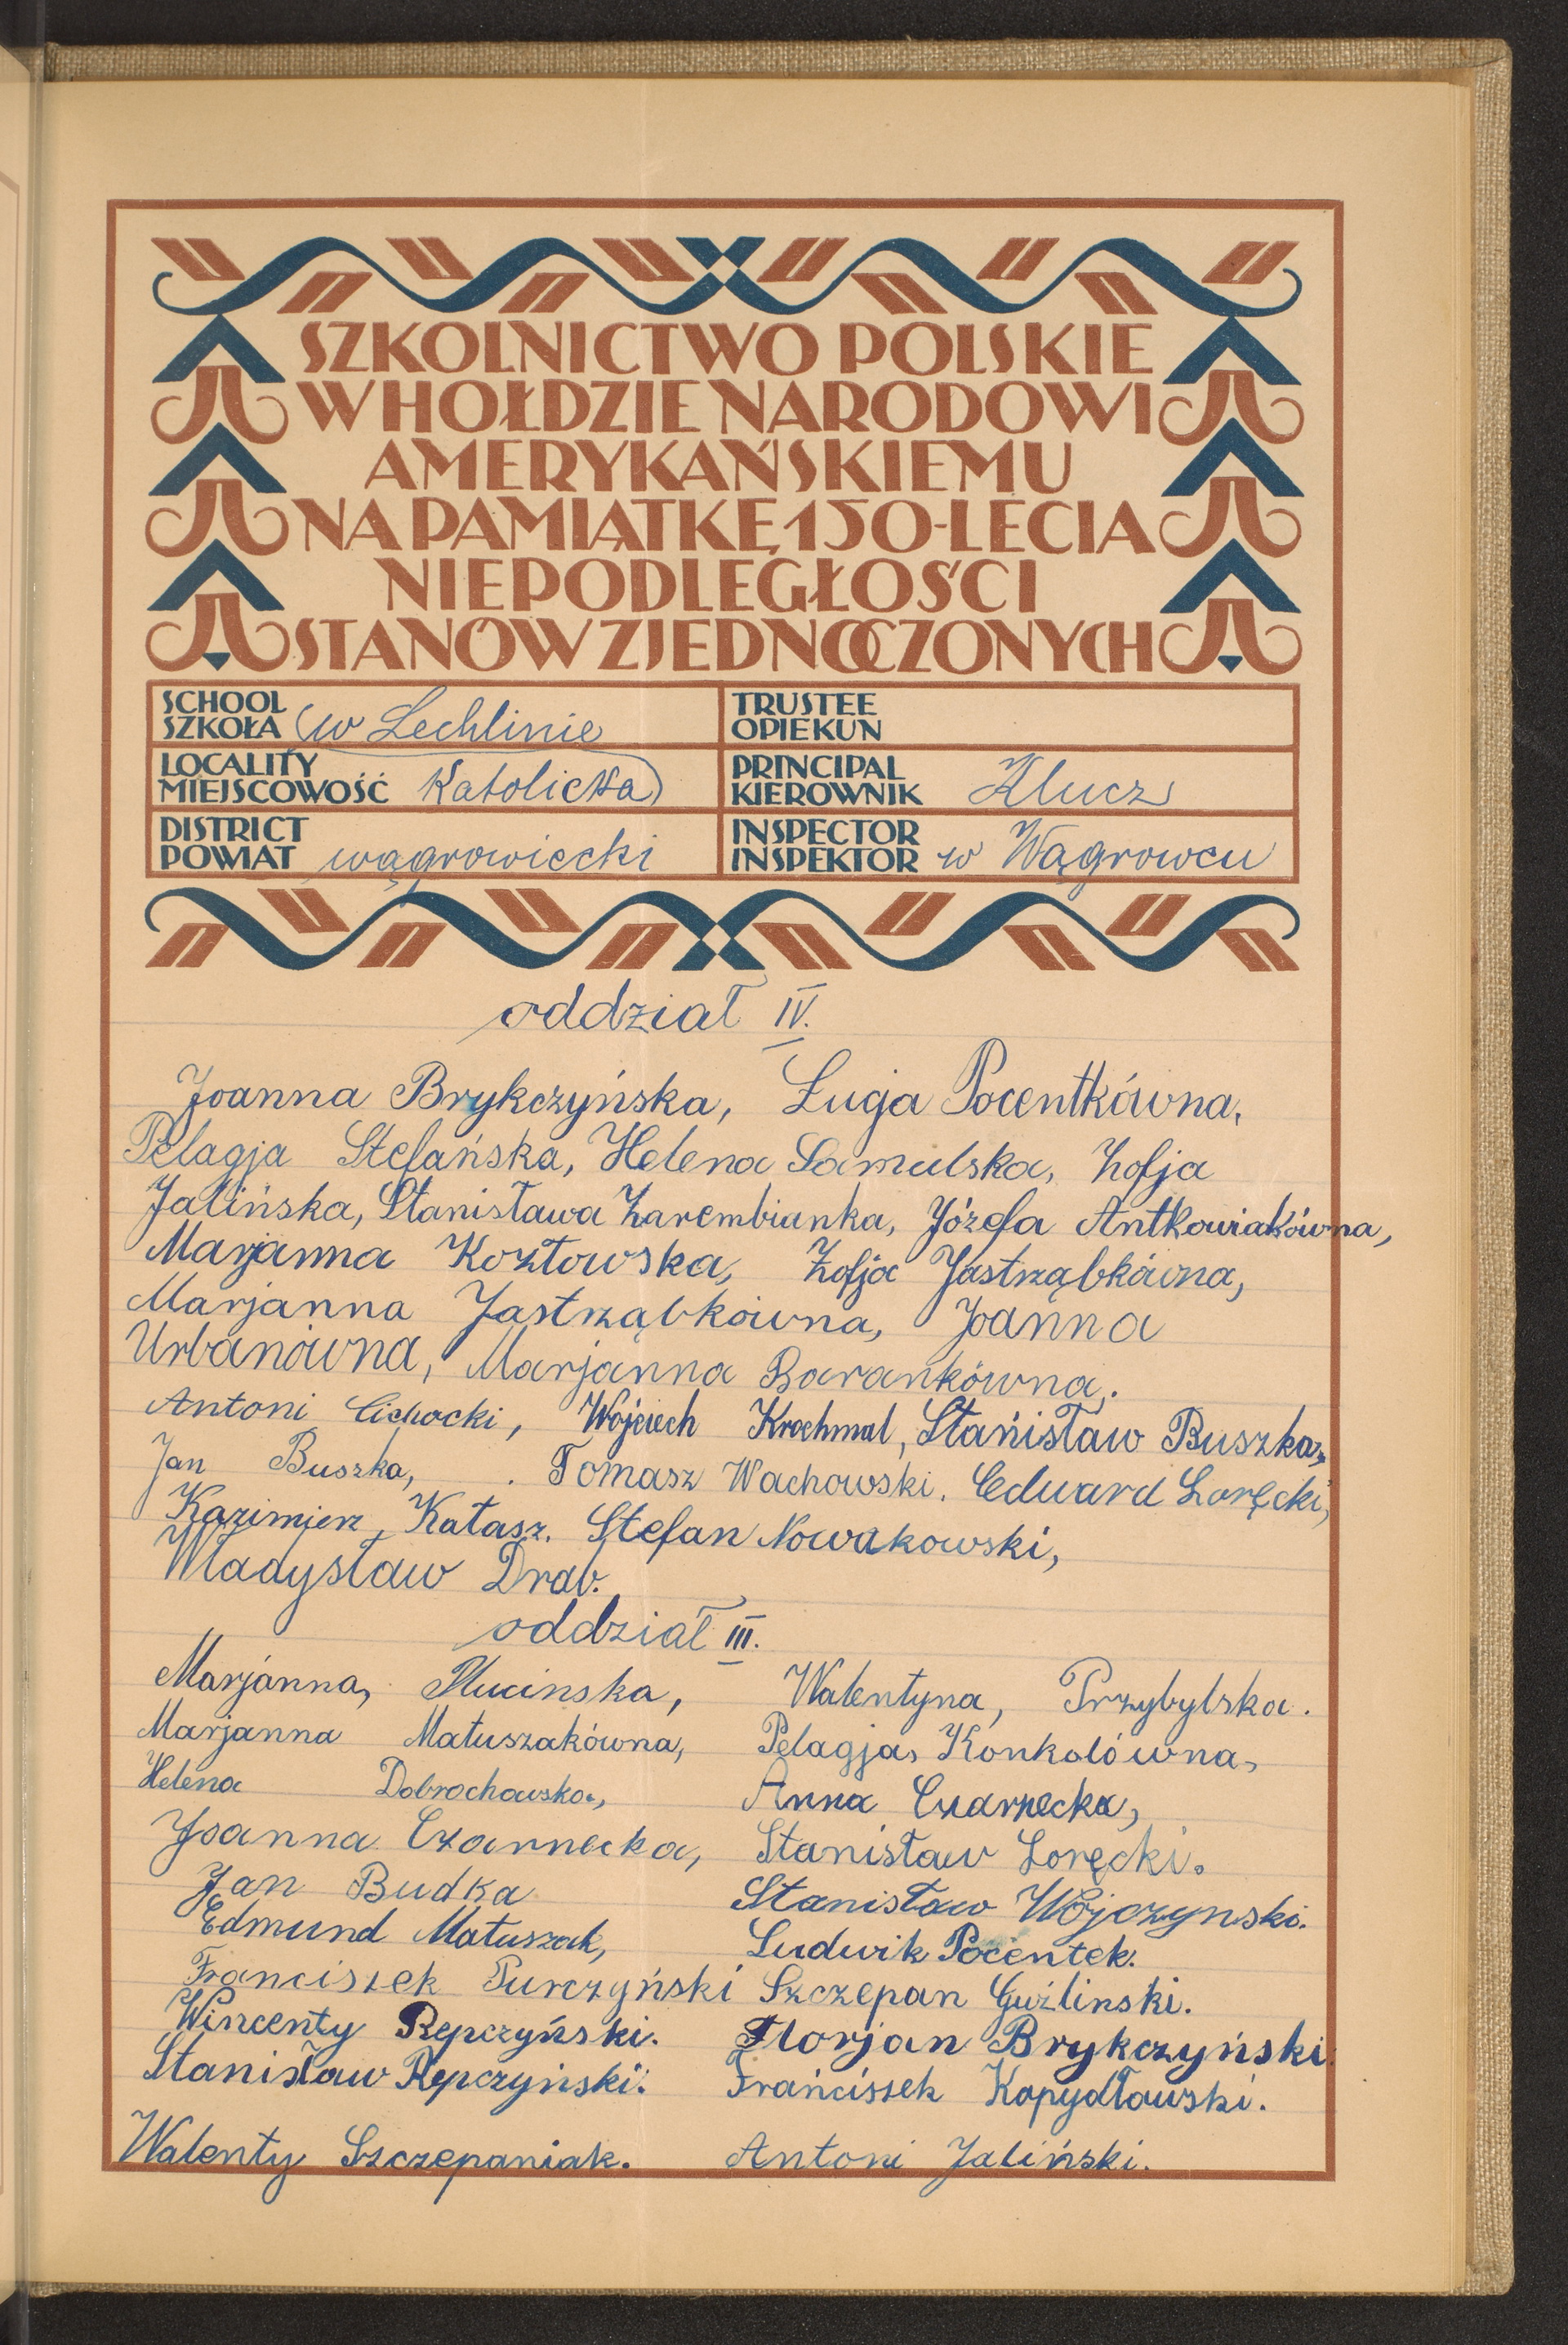 SZKOLNICTWO POLSKIE
W HOŁDZIE NARODOWI
AMERYKAŃSKIEMU
NA PAMIĄTKĘ 150-LECIA
NIEPODLEGŁOŚCI
STANÓW ZJEDNOCZONYCH
SCHOOL
SZKOŁA (w Lechlinie
TRUSTEE
OPIEKUN
LOCALITY
MIEJSCOWOŚĆ Katolicka)
PRINCIPAL
KIEROWNIK Klucz
DISTRICT
POWIAT wągrowiecki
INSPECTOR
INSPEKTOR w Wągrowcu
oddział IV.
Joanna Brykczyńska, Łucja Pocentkówna,
Pelagja Stefańska, Helena Samulska, Zofja
Jalińska, Stanisława Zarembianka, Józefa Antkowiakówna,
Marjanna Kozłowska, Zofja Jastrząbkówna,
Marjanna Jastrząbkówna, Joanna
Urbanówna, Marjanna Barankówna,.
Antoni Cichocki, Wojciech Krochmal, Stanisław Buszka,
Jan Buszka, . Tomasz Wachowski. Edward Loręcki,
Kazimierz Katasz. Stefan Nowakowski,
Władysław Drab.
oddział III.
Marjanna, Plucinska, Walentyna, Przybylska.
Marjanna Matuszakówna, Pelagja, Konkolówna,
Helena Dobrochowska, Anna Czarnecka,
Joanna Czarnecka, Stanisław Loręcki.
Jan Budka Stanisław Wójczynski.
Edmund Matuszak, Ludwik Pocentek.
Franciszek Turczyński Szczepan Guźlinski.
Wincenty Repczyński. Florjan Brykczyński.
Stanisław Repczyński. Franciszek Kopydłowski.
Walenty Szczepaniak. Antoni Jaliński.